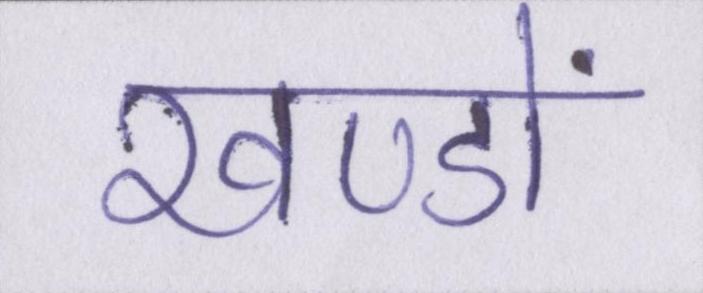 खण्डों